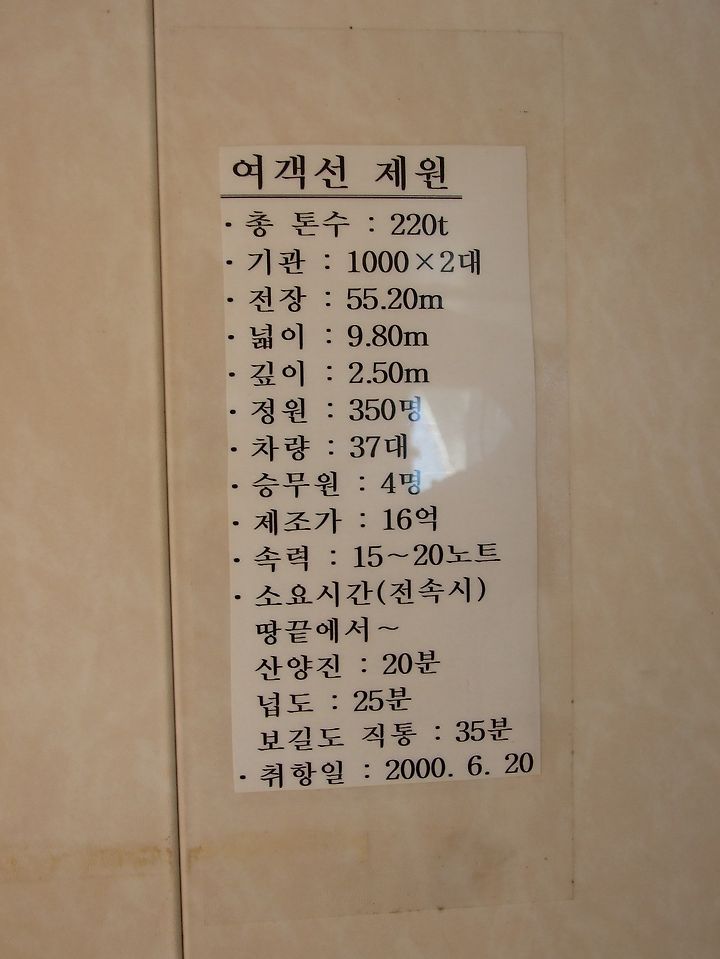 여객선 제원
· 총 톤수 : 220t
· 기관 : 1000×2대
· 전장 : 55.20m
· 넓이 : 9.80m
· 깊이 : 2.50m
· 정원 : 350명
· 차량 : 37대
· 승무원 : 4명
· 제조가 : 16억
· 속력 : 15~20노트
· 소요시간(전속시)
땅끝에서~
산양진 : 20분
넙도 : 25분
보길도 직통 : 35분
· 취항일 : 2000. 6. 20